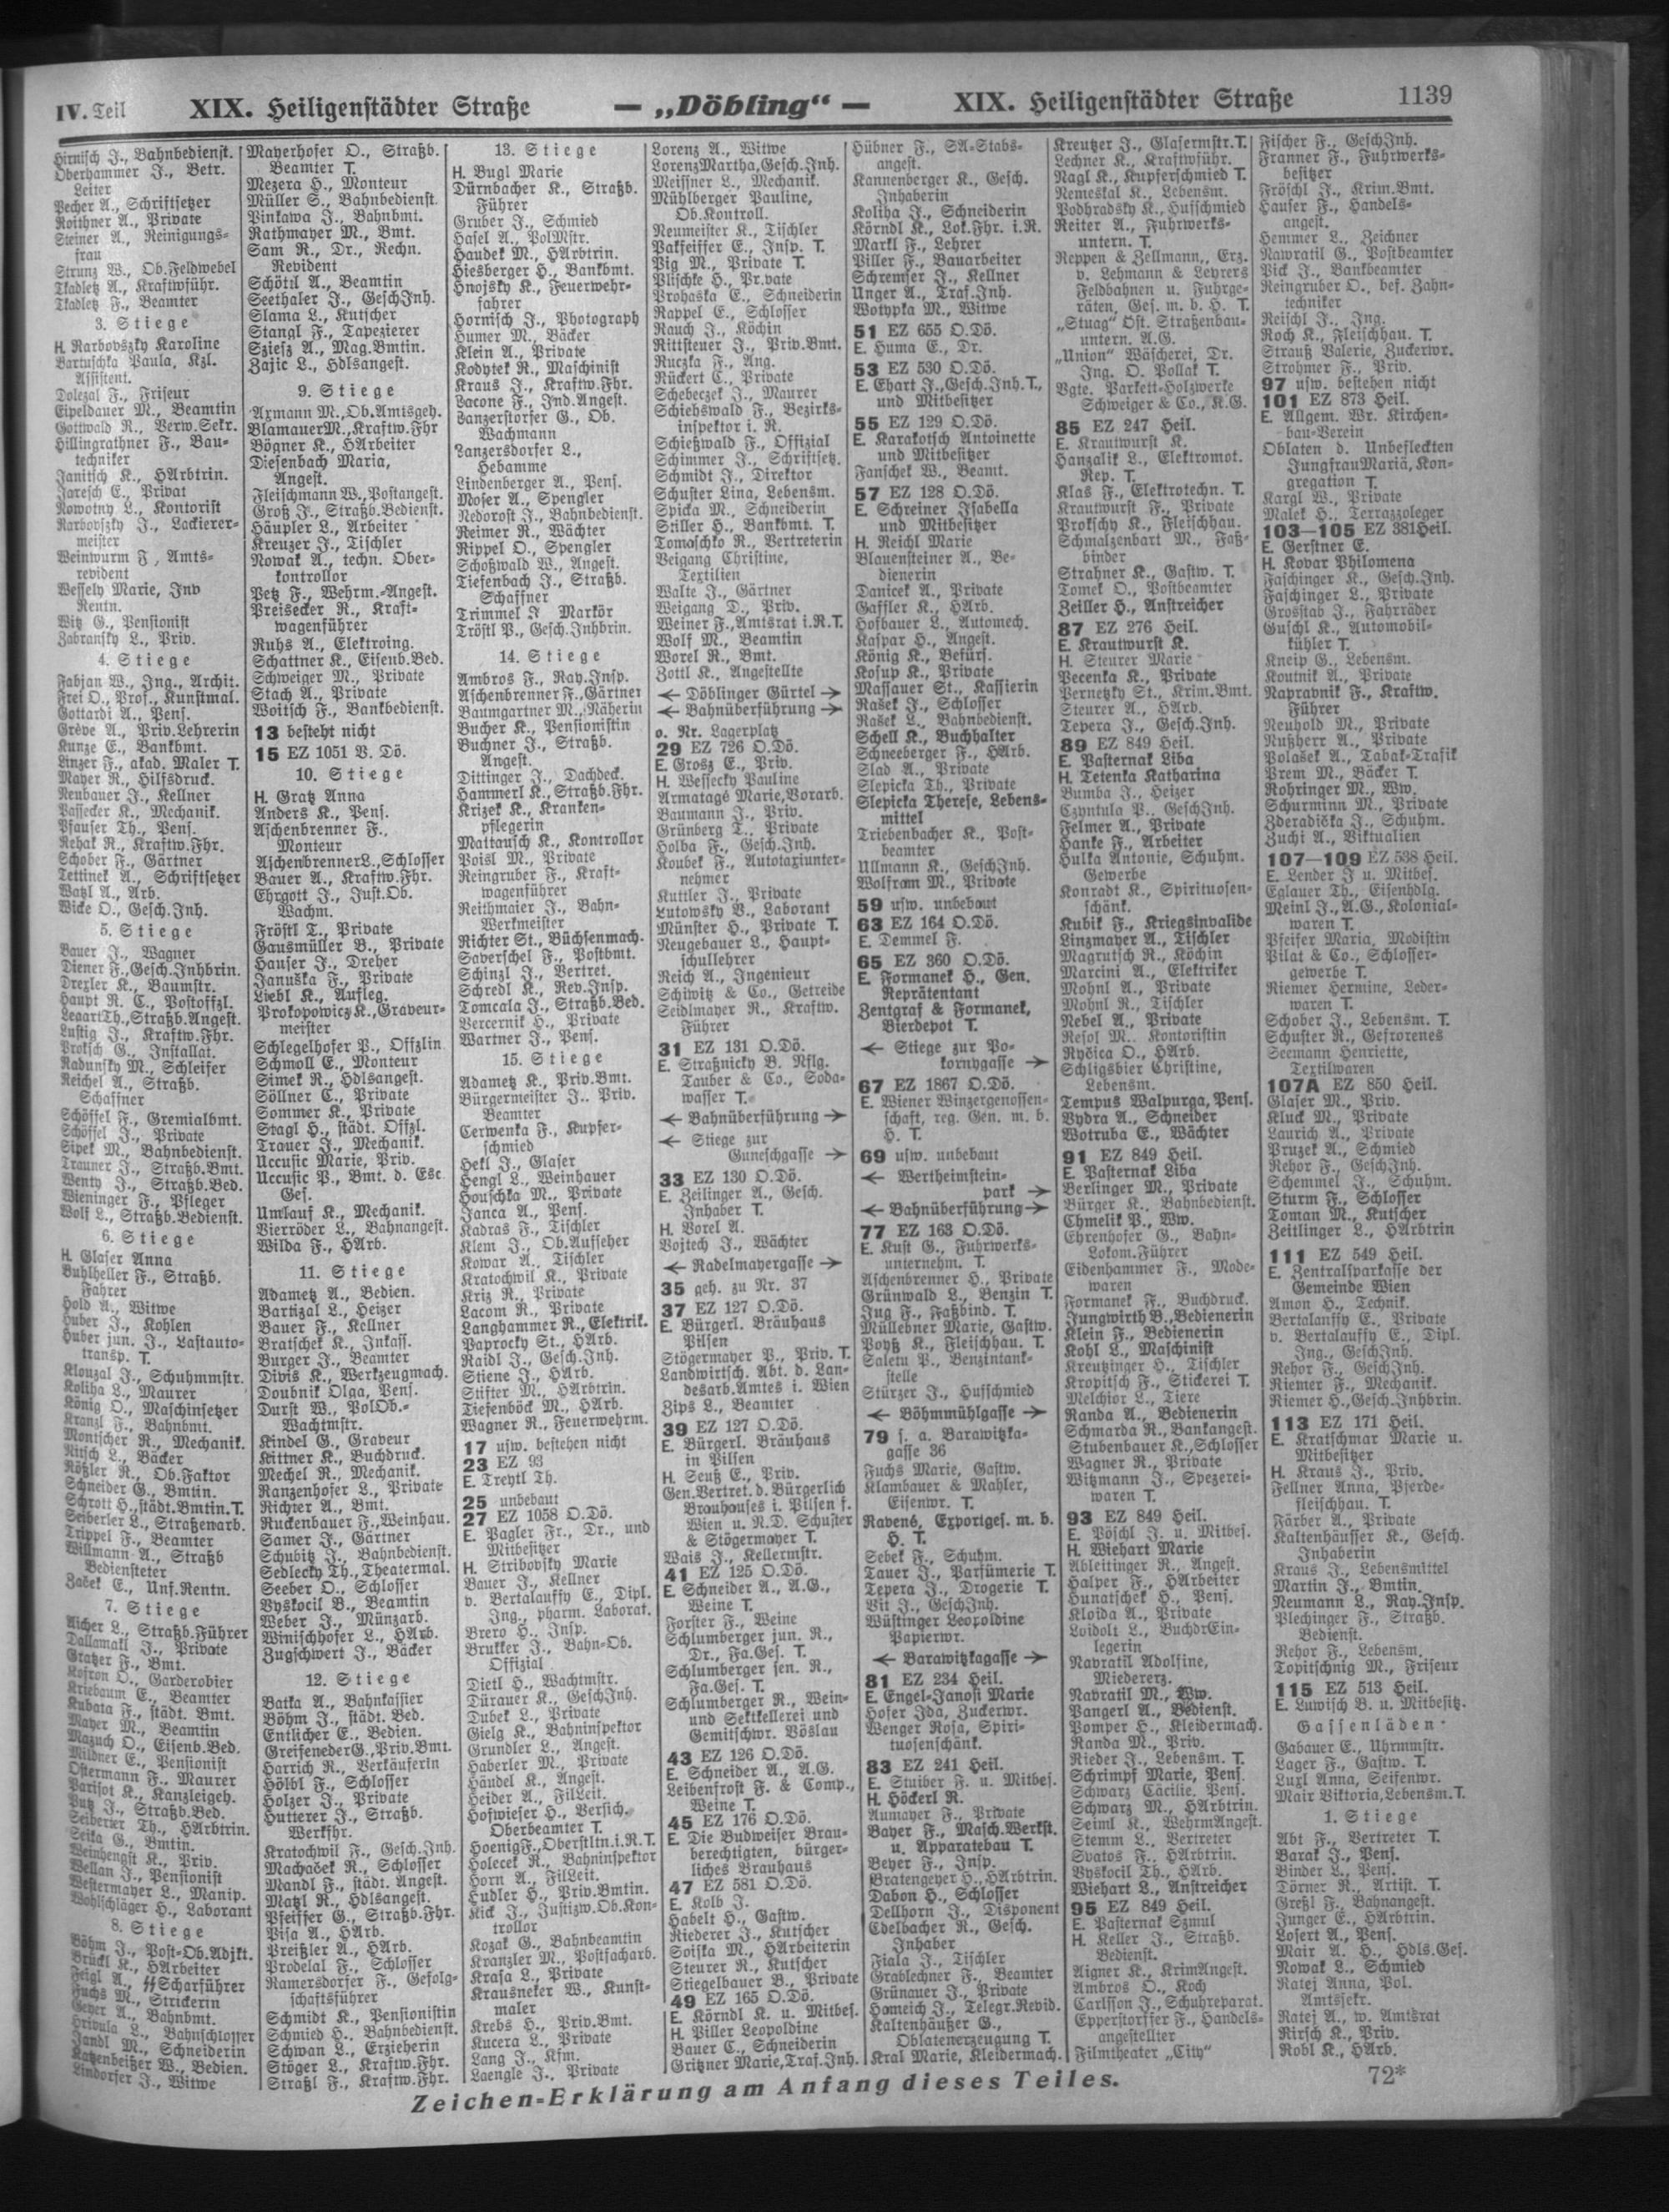 IV. Teil XIX. Heiligenstädter Straße — „Döbling“ — XIX. Heiligenstädter Straße 1139
Hirnisch J., Bahnbedienst.
Oberhammer J., Betr.
Leiter
Pecher A., Schriftsetzer
Roithner A., Private
Steiner A., Reinigungs-
frau
Strunz W., Ob.Feldwebel
Tkadletz A., Kraftwführ.
Tkadletz F., Beamter
3. Stiege
H. Narbovszky Karoline
Bartuschka Paula, Kzl.
Assistent.
Dolezal F., Friseur
Eipeldauer M., Beamtin
Gottwald R., Verw.Sekr.
Hillingrathner F., Bau-
techniker
Janitsch K., HArbtrin.
Jaresch E., Privat
Nowotny L., Kontorist
Narbovszky J., Lackierer-
meister
Weinwurm F., Amts-
revident
Wessely Marie, Inv
Rentn.
Witz G., Pensionist
Zabransky L., Priv.
4. Stiege
Fabjan W., Ing., Archit.
Frei O., Prof., Kunstmal.
Gottardi A., Pens.
Grève A., Priv.Lehrerin
Kunze E., Bankbmt.
Linzer F., akad. Maler T.
Mayer R., Hilfsdruck.
Neubauer J., Kellner
Passecker K., Mechanik.
Pfauser Th., Pens.
Rehak R., Kraftw.Fhr.
Schober F., Gärtner
Tettinek A., Schriftsetzer
Watzl A., Arb.
Wicke O., Gesch.Inh.
5. Stiege
Bauer J., Wagner
Diener F., Gesch.Inhbrin.
Drexler K., Baumstr.
Haupt R. C., Postoffzl.
Legart Th., Straßb.Angest.
Lustig J., Kraftw.Fhr.
Proksch G., Installat.
Radunsky M., Schleifer
Reichel A., Straßb.
Schaffner
Schöffel F., Gremialbmt.
Schöffel J., Private
Sipek M., Bahnbedienst.
Trauner J., Straßb.Bmt.
Wenty J., Straßb.Bed.
Wieninger F., Pfleger
Wolf L., Straßb.Bedienst.
6. Stiege
H. Glaser Anna
Buhlheller F., Straßb.
Fahrer
Hold A., Witwe
Huber J., Kohlen
Huber jun. J., Lastauto-
transp. T.
Klouzal J., Schuhmmstr.
Koliha L., Maurer
König O., Maschinsetzer
Kranzl F., Bahnbmt.
Montscher R., Mechanik.
Nitsch L., Bäcker
Rößler R., Ob.Faktor
Schneider G., Bmtin.
Schrott H., städt.Bmtin.T.
Seiberler L., Straßenarb.
Trippel F., Beamter
Willmann A., Straßb
Bediensteter
Začek E., Unf.Rentn.
7. Stiege
Aicher L., Straßb.Führer
Dallamakl J., Private
Gratzer F., Bmt.
Kofron O., Garderobier
Kriebaum E., Beamter
Kubata F., städt. Bmt.
Mayer M., Beamtin
Mazuch O., Eisenb.Bed.
Mildner E., Pensionist
Ostermann F., Maurer
Parisot K., Kanzleigeh.
Putz J., Straßb.Bed.
Seiberler Th., HArbtrin.
Seika G., Bmtin.
Weinhengst K., Priv.
Wellan J., Pensionist
Westermayer L., Manip.
Wohlschläger H., Laborant
8. Stiege
Böhm J., Post-Ob.Adjkt.
Brückl K., HArbeiter
Feigl A., SS Scharführer
Fuchs M., Strickerin
Geyer A., Bahnbmt.
Hrivula L., Bahnschlosser
Jandl M., Schneiderin
Katzenbeißer W., Bedien.
Lindorfer J., Witwe
Mayerhofer O., Straßb.
Beamter T.
Mezera H., Monteur
Müller S., Bahnbedienst.
Pinkawa J., Bahnbmt.
Rathmayer M., Bmt.
Sam R., Dr., Rechn.
Revident
Schötil A., Beamtin
Seethaler J., GeschInh.
Slama L., Kutscher
Stangl F., Tapezierer
Sziesz A., Mag.Bmtin.
Zajic L., Hdlsangest.
9. Stiege
Axmann M., Ob.Amtsgeh.
Blamauer M., Kraftw.Fhr
Bögner K., HArbeiter
Diefenbach Maria,
Angest.
Fleischmann W., Postangest.
Groß J., Straßb.Bedienst.
Häupler L., Arbeiter
Kreuzer J., Tischler
Nowak A., techn. Ober-
kontrollor
Petz F., Wehrm.-Angest.
Preisecker R., Kraft-
wagenführer
Ruhs A., Elektroing.
Schattner K., Eisenb.Bed.
Schweiger M., Private
Stach A., Private
Woitsch F., Bankbedienst.
13 besteht nicht
15 EZ 1051 V. Dö.
10. Stiege
H. Gratz Anna
Anders K., Pens.
Aschenbrenner F.,
Monteur
Aschenbrenner L., Schlosser
Bauer A., Kraftw.Fhr.
Ehrgott J., Just.Ob.
Wachm.
Fröstl T., Private
Gausmüller B., Private
Hauser J., Dreher
Januška F., Private
Liebl K., Aufleg.
Prokopowicz K., Graveur-
meister
Schlegelhofer P., Offzlin.
Schmoll E., Monteur
Simek R., Hdlsangest.
Söllner C., Private
Sommer K., Private
Stagl H., städt. Offzl.
Trauer J., Mechanik.
Uccusic Marie, Priv.
Uccusic P., Bmt. d. Esc.
Ges.
Umlauf K., Mechanik.
Vierröder L., Bahnangest.
Wilda F., HArb.
11. Stiege
Adametz A., Bedien.
Bartizal L., Heizer
Bauer F., Kellner
Bratschek K., Inkass.
Burger J., Beamter
Divis K., Werkzeugmach.
Doubnik Olga, Pens.
Durst W., PolOb.-
Wachtmstr.
Kindel G., Graveur
Kittner K., Buchdruck.
Mechel R., Mechanik.
Ranzenhofer L., Private
Richter A., Bmt.
Ruckenbauer F., Weinhau.
Samer J., Gärtner
Schubitz J., Bahnbedienst.
Sedlecky Th., Theatermal.
Seeber O., Schlosser
Vyskocil B., Beamtin
Weber J., Münzarb.
Winischhofer L., HArb.
Zugschwert J., Bäcker
12. Stiege
Batka A., Bahnkassier
Böhm J., städt. Bed.
Entlicher E., Bedien.
Greifeneder G., Priv.Bmt.
Harrich R., Verkäuferin
Hölbl F., Schlosser
Holzer J., Private
Hutterer J., Straßb.
Werkfhr.
Kratochwil F., Gesch.Inh.
Machaček R., Schlosser
Mandl F., städt. Angest.
Matzl R., Hdlsangest.
Pfeiffer G., Straßb.Fhr.
Pisa A., HArb.
Preißler A., HArb.
Prodelal F., Schlosser
Ramersdorfer F., Gefolg-
schaftsführer
Schmidt K., Pensionistin
Schmied H., Bahnbedienst.
Schwan L., Erzieherin
Stöger L., Kraftw.Fhr.
Straßl F., Kraftw.Fhr.
13. Stiege
H. Bugl Marie
Dürnbacher K., Straßb.
Führer
Gruber J., Schmied
Hasel A., PolMstr.
Haudek M., HArbtrin.
Hiesberger H., Bankbmt.
Hnojsky K., Feuerwehr-
fahrer
Hornisch J., Photograph
Humer M., Bäcker
Klein A., Private
Kodytek R., Maschinist
Kraus J., Kraftw.Fhr.
Lacone F., Ind.Angest.
Lanzerstorfer G., Ob.
Wachmann
Lanzersdorfer L.,
Hebamme
Lindenberger A., Pens.
Moser A., Spengler
Nedorost J., Bahnbedienst.
Reimer R., Wächter
Rippel O., Spengler
Schoßwald W., Angest.
Tiefenbach J., Straßb.
Schaffner
Trimmel J. Markör
Tröstl P., Gesch.Inhbrin.
14. Stiege
Ambros F., Ray.Insp.
Aschenbrenner F., Gärtner
Baumgartner M., Näherin
Bucher K., Pensionistin
Buchner J., Straßb.
Angest.
Dittinger J., Dachdeck.
Hammerl K., Straßb.Fhr.
Krizek K., Kranken-
pflegerin
Mattausch K., Kontrollor
Poisl M., Private
Reingruber F., Kraft-
wagenführer
Reithmaier J., Bahn-
Werkmeister
Richter St., Büchsenmach.
Saverschel F., Postbmt.
Schinzl J., Vertret.
Schredl K., Rev.Insp.
Tomcala J., Straßb.Bed.
Vercernik H., Private
Wartner J., Pens.
15. Stiege
Adametz K., Priv.Bmt.
Bürgermeister J., Priv.
Beamter
Cerwenka F., Kupfer-
schmied
Hekl J., Glaser
Hengl L., Weinhauer
Houschka M., Private
Janca A., Pens.
Kadras F., Tischler
Klem J., Ob.Aufseher
Kowar A., Tischler
Kratochwil K., Private
Kriz R., Private
Lacom R., Private
Langhammer R., Elektrik.
Paprocky St., HArb.
Raidl J., Gesch.Inh.
Stiene J., HArb.
Stifter M., HArbtrin.
Tiefenböck M., HArb.
Wagner R., Feuerwehrm.
17 usw. bestehen nicht
23 EZ 93
E. Treytl Th.
25 unbebaut
27 EZ 1058 O.Dö.
E. Pagler Fr., Dr., und
Mitbesitzer
H. Stribovsky Marie
Bauer J., Kellner
v. Bertalauffy E., Dipl.
Ing., pharm. Laborat.
Brero H., Insp.
Brukker J., Bahn-Ob.
Offizial
Dietl H., Wachtmstr.
Dürauer K., GeschInh.
Dubek L., Private
Gielg K., Bahninspektor
Grundler L., Angest.
Haberler M., Private
Händel K., Angest.
Heider A., FilLeit.
Hofwieser H., Versich.
Oberbeamter T.
Hoenig F., Oberstltn.i.R.T.
Holecek R., Bahninspektor
Horn A., FilLeit.
Hudler H., Priv.Bmtin.
Kick J., Justizw.Ob.Kon-
trollor
Kozak G., Bahnbeamtin
Kranzler M., Postfacharb.
Krasa L., Private
Krausneker W., Kunst-
maler
Krebs H., Priv.Bmt.
Kucera L., Private
Lang J., Kfm.
Laengle J., Private
Lorenz A., Witwe
Lorenz Martha, Gesch.Inh.
Meissner L., Mechanik.
Mühlberger Pauline,
Ob.Kontroll.
Neumeister K., Tischler
Pakfeiffer E., Insp. T.
Pig M., Private T.
Plischke H., Private
Prohaska E., Schneiderin
Rappel E., Schlosser
Rauch J., Köchin
Rittsteuer J., Priv.Bmt.
Ruczka F., Ang.
Rückert C., Private
Schebeczek J., Maurer
Schiehswald F., Bezirks-
inspektor i. R.
Schießwald F., Offizial
Schimmer J., Schriftsetz.
Schmidt J., Direktor
Schuster Lina, Lebensm.
Spicka M., Schneiderin
Stiller H., Bankbmt. T.
Tomaschko R., Vertreterin
Veigang Christine,
Textilien
Walte J., Gärtner
Weigang D., Priv.
Weiner F., Amtsrat i.R.T.
Wolf M., Beamtin
Worel R., Bmt.
Zottl K., Angestellte
← Döblinger Gürtel →
← Bahnüberführung →
o. Nr. Lagerplatz
29 EZ 726 O.Dö.
E. Grosz E., Priv.
H. Wessecky Pauline
Armatags Marie, Vorarb.
Baumann J., Priv.
Grünberg T., Private
Holba F., Gesch.Inh.
Koubek F., Autotaxiunter-
nehmer
Kuttler J., Private
Lutowsky V., Laborant
Münster H., Private T.
Neugebauer L., Haupt-
schullehrer
Reich A., Ingenieur
Schiwitz & Co., Getreide
Seidlmayer R., Kraftw.
Führer
31 EZ 131 O.Dö.
E. Straßnicky B. Nflg.
Tauber & Co., Soda-
wasser T.
← Bahnüberführung →
← Stiege zur
Guneschgasse →
33 EZ 130 O.Dö.
E. Zeilinger A., Gesch.
Inhaber T.
H. Vorel A.
Vojtech J., Wächter
← Radelmayergasse →
35 geh. zu Nr. 37
37 EZ 127 O.Dö.
E. Bürgerl. Bräuhaus
Pilsen
Stögermayer P., Priv. T.
Landwirtsch. Abt. d. Lan-
desarb.Amtes i. Wien
Zips L., Beamter
39 EZ 127 O.Dö.
E. Bürgerl. Bräuhaus
in Pilsen
H. Seuß E., Priv.
Gen.Vertret. d. Bürgerlich
Brauhauses i. Pilsen f.
Wien u. N.D. Schuster
& Stögermayer T.
Wais J., Kellermstr.
41 EZ 125 O.Dö.
E. Schneider A., A.G.,
Weine T.
Forster F., Weine
Schlumberger jun. R.,
Dr., Fa.Ges. T.
Schlumberger sen. R.,
Fa.Ges. T.
Schlumberger R., Wein-
und Sektkellerei und
Gemischtwr. Vöslau
43 EZ 126 O.Dö.
E. Schneider A., A.G.
Leibenfrost F. & Comp.,
Weine T.
45 EZ 176 O.Dö.
E. Die Budweiser Brau-
berechtigten, bürger-
liches Brauhaus
47 EZ 581 O.Dö.
E. Kolb J.
Habelt H., Gastw.
Riederer J., Kutscher
Soiska M., HArbeiterin
Steurer R., Kutscher
Stiegelbauer B., Private
49 EZ 165 O.Dö.
E. Körndl K. u. Mitbes.
H. Piller Leopoldine
Bauer C., Schneiderin
Gritzner Marie, Traf.Inh.
Hübner F., SA-Stabs-
angest.
Kannenberger K., Gesch.
Inhaberin
Koliha J., Schneiderin
Körndl K., Lok.Fhr. i.R.
Markl F., Lehrer
Piller F., Bauarbeiter
Schremser J., Kellner
Unger A., Traf.Inh.
Wotypka M., Witwe
51 EZ 655 O.Dö.
E. Huma E., Dr.
53 EZ 530 O.Dö.
E. Ehart J., Gesch.Inh.T.,
und Mitbesitzer
55 EZ 129 O.Dö.
E. Karakotsch Antoinette
und Mitbesitzer
Fanschek W., Beamt.
57 EZ 128 O.Dö.
E. Schreiner Isabella
und Mitbesitzer
H. Reichl Marie
Blauensteiner A., Be-
dienerin
Danicek A., Private
Gaffler K., HArb.
Hofbauer L., Automech.
Kaspar H., Angest.
König K., Befürs.
Kosup K., Private
Massauer St., Kassierin
Rašek J., Schlosser
Rašek L., Bahnbedienst.
Schell K., Buchhalter
Schneeberger F., HArb.
Slad A., Private
Slepicka Th., Private
Slepicka Therese, Lebens-
mittel
Triebenbacher K., Post-
beamter
Ullmann K., GeschInh.
Wolfram M., Private
59 usw. unbebaut
63 EZ 164 O.Dö.
E. Demmel F.
65 EZ 360 O.Dö.
E. Formanek H., Gen.
Repräsentant
Zentgraf & Formanek,
Bierdepot T.
← Stiege zur Po-
kornygasse →
67 EZ 1867 O.Dö.
E. Wiener Winzergenossen-
schaft, reg. Gen. m. b.
H. T.
69 usw. unbebaut
← Wertheimstein-
park →
← Bahnüberführung →
77 EZ 163 O.Dö.
E. Kust G., Fuhrwerks-
unternehm. T.
Aschenbrenner H., Private
Grünwald L., Benzin T.
Jug F., Faßbind. T.
Müllebner Marie, Gastw.
Poyß K., Fleischhau. T.
Saletu P., Benzintank-
stelle
Stürzer J., Hufschmied
← Böhmmühlgasse →
79 s. a. Barawitzka-
gasse 36
Fuchs Marie, Gastw.
Klambauer & Mahler,
Eisenwr. T.
Ravens, Exportges. m. b.
H. T.
Sebek F., Schuhm.
Tauer J., Parfümerie T.
Tepera J., Drogerie T.
Vit J., GeschInh.
Wüstinger Leopoldine
Papierwr.
← Barawitzkagasse →
81 EZ 234 Heil.
E. Engel-Janosi Marie
Hofer Ida, Zuckerwr.
Wenger Rosa, Spiri-
tuosenschänk.
83 EZ 241 Heil.
E. Stuiber F. u. Mitbes.
H. Höckerl R.
Aumayer F., Private
Bayer F., Masch.Werkst.
u. Apparatebau T.
Beyer F., Insp.
Bratengeyer H., HArbtrin.
Dabon H., Schlosser
Dellhorn J., Disponent
Edelbacher R., Gesch.
Inhaber
Fiala J., Tischler
Grablechner F., Beamter
Grünauer J., Private
Homeich J., Telegr.Revid.
Kaltenhäußer G.,
Oblatenerzeugung T.
Kral Marie, Kleidermach.
Kreutzer J., Glasermstr.T.
Lechner K., Kraftwführ.
Nagl K., Kupferschmied T.
Nemeskal K., Lebensm.
Podhradsky K., Hufschmied
Reiter A., Fuhrwerks-
untern. T.
Reppen & Zellmann,, Erz.
v. Lehmann & Leyrers
Feldbahnen u. Fuhrge-
räten, Ges. m. b. H. T.
„Stuag“ Öst. Straßenbau-
untern. A.G.
„Union“ Wäscherei, Dr.
Ing. O. Pollak T.
Vgte. Parkett-Holzwerke
Schweiger & Co., K.G.
85 EZ 247 Heil.
E. Krautwurst K.
Hanzalik L., Elektromot.
Rep. T.
Klas F., Elektrotechn. T.
Krautwurst F., Private
Prokschy K., Fleischhau.
Schmalzenbart M., Faß-
binder
Strahner K., Gastw. T.
Tomek O., Postbeamter
Zeiller H., Anstreicher
87 EZ 276 Heil.
E. Krautwurst K.
H. Steurer Marie
Pecenka K., Private
Pernetzky St., Krim.Bmt.
Steurer A., HArb.
Tepera J., Gesch.Inh.
89 EZ 849 Heil.
E. Pasternak Liba
H. Tetenka Katharina
Bumba J., Heizer
Czyntula P., GeschInh.
Felmer A., Private
Hanke F., Arbeiter
Hulka Antonie, Schuhm.
Gewerbe
Konradt K., Spirituosen-
schänk.
Kubik F., Kriegsinvalide
Linzmayer A., Tischler
Magrutsch R., Köchin
Marcini A., Elektriker
Mohnl A., Private
Mohnl R., Tischler
Nebel A., Private
Resol M., Kontoristin
Ryčica O., HArb.
Schligsbier Christine,
Lebensm.
Tempus Walpurga, Pens.
Vydra A., Schneider
Wotruba E., Wächter
91 EZ 849 Heil.
E. Pasternak Liba
Berlinger M., Private
Bürger K., Bahnbedienst.
Chmelik P., Ww.
Ehrenhofer G., Bahn-
Lokom.Führer
Eidenhammer F., Mode-
waren
Formanek F., Buchdruck.
Jungwirth B., Bedienerin
Klein F., Bedienerin
Kohl L., Maschinist
Kreutzinger H., Tischler
Kropitsch F., Stickerei T.
Melchior L., Tiere
Randa A., Bedienerin
Schmarda R., Bankangest.
Stubenbauer K., Schlosser
Wagner R., Private
Witzmann J., Spezerei-
waren T.
93 EZ 849 Heil.
E. Pöschl J. u. Mitbes.
H. Wiehart Marie
Ableitinger R., Angest.
Halper F., HArbeiter
Hunatschek H., Pens.
Kloida A., Private
Loidolt L., BuchdrEin-
legerin
Navratil Adolfine,
Miedererz.
Navratil M., Ww.
Pangerl A., Bedienst.
Pomper H., Kleidermach.
Randa M., Priv.
Rieder J., Lebensm. T.
Schrimpf Marie, Pens.
Schwarz Cäcilie, Pens.
Schwarz M., HArbtrin.
Seiml K., WehrmAngest.
Stemm L., Vertreter
Svatos F., HArbtrin.
Vyskocil Th., HArb.
Wiehart L., Anstreicher
95 EZ 849 Heil.
E. Pasternak Szmul
H. Keller J., Straßb.
Bedienst.
Aigner K., KrimAngest.
Ambros O., Koch
Carlsson J., Schuhreparat.
Epperstorffer F., Handels-
angestellter
Filmtheater „City“
Fischer F., GeschInh.
Franner F., Fuhrwerks-
besitzer
Fröschl J., Krim.Bmt.
Hauser F., Handels-
angest.
Hemmer L., Zeichner
Nawratil G., Postbeamter
Pick J., Bankbeamter
Reingruber O., bef. Zahn-
techniker
Reischl J., Ing.
Roch K., Fleischhau. T.
Strauß Valerie, Zuckerwr.
Strohmer F., Priv.
97 usw. bestehen nicht
101 EZ 873 Heil.
E. Allgem. Wr. Kirchen-
bau-Verein
Oblaten d. Unbefleckten
Jungfrau Mariä, Kon-
gregation T.
Kargl W., Private
Malek H., Terrazzoleger
103—105 EZ 381 Heil.
E. Gerstner E.
H. Kovar Philomena
Faschinger K., Gesch.Inh.
Faschinger L., Private
Grosstab J., Fahrräder
Guschl K., Automobil-
kühler T.
Kneip G., Lebensm.
Koutnik A., Private
Napravnik F., Kraftw.
Führer
Neuhold M., Private
Nußherr A., Private
Polašek A., Tabak-Trafik
Prem M., Bäcker T.
Rohringer M., Ww.
Schurminn M., Private
Zderadička J., Schuhm.
Zuchi A., Viktualien
107—109 EZ 538 Heil.
E. Lender J u. Mitbes.
Eglauer Th., Eisenhdlg.
Meinl J., A.G., Kolonial-
waren T.
Pfeifer Maria, Modistin
Pilat & Co., Schlosser-
gewerbe T.
Riemer Hermine, Leder-
waren T.
Schober J., Lebensm. T.
Schuster R., Gefrorenes
Seemann Henriette,
Textilwaren
107A EZ 850 Heil.
Glaser M., Priv.
Kluck M., Private
Laurich A., Private
Pruzek A., Schmied
Rehor F., GeschInh.
Schemmel J., Schuhm.
Sturm F., Schlosser
Toman M., Kutscher
Zeitlinger L., HArbtrin
111 EZ 549 Heil.
E. Zentralsparkasse der
Gemeinde Wien
Amon H., Technik.
Bertalanffy E., Private
v. Bertalauffy E., Dipl.
Ing., GeschInh.
Rehor F., GeschInh.
Riemer F., Mechanik.
Riemer H., Gesch.Inhbrin.
113 EZ 171 Heil.
E. Kratschmar Marie u.
Mitbesitzer
H. Kraus J., Priv.
Fellner Anna, Pferde-
fleischhau. T.
Färber A., Private
Kaltenhäusser K., Gesch.
Inhaberin
Kraus J., Lebensmittel
Martin J., Bmtin.
Neumann L., Ray.Insp.
Plechinger F., Straßb.
Bedienst.
Rehor F., Lebensm.
Topitschnig M., Friseur
115 EZ 513 Heil.
E. Luwisch B. u. Mitbesitz.
Gassenläden
Gabauer E., Uhrmmstr.
Lager F., Gastw. T.
Luxl Anna, Seifenwr.
Mair Viktoria, Lebensm.T.
1. Stiege
Abt F., Vertreter T.
Barak J., Pens.
Binder L., Pens.
Dörner R., Artist. T.
Greßl F., Bahnangest.
Junger E., HArbtrin.
Losert A., Pens.
Mair A. H., Hdls.Ges.
Nowak L., Schmied
Ratej Anna, Pol.
Amtssekr.
Ratej A., w. Amtsrat
Rirsch K., Priv.
Robl K., HArb.
Zeichen-Erklärung am Anfang dieses Teiles.
72*